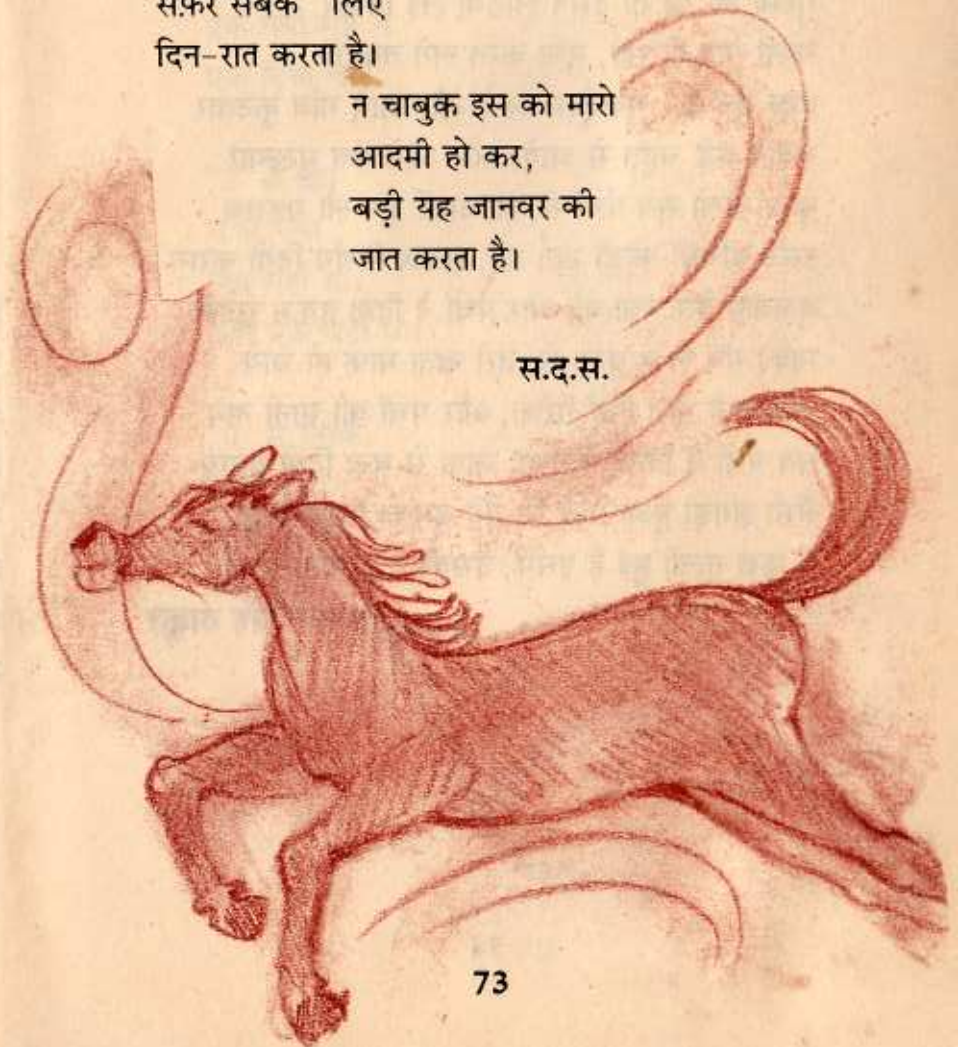 सफ़र सबके लिए
दिन-रात करता है।
न चाबुक इस को मारो
आदमी हो कर,
बड़ी यह जानवर की
जात करता है।
स.द.स.
73